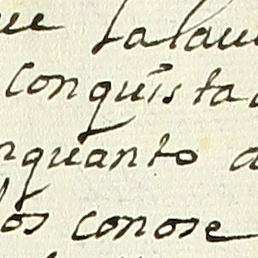 ue Lalau
conquista
nquanto a
los conose